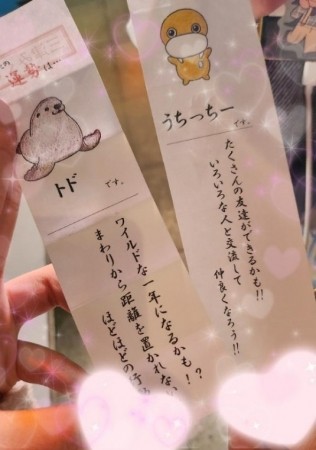 運勢は…
トド
です。
ワイルドな一年になるかも!?
まわりから距離を置かれない
ほどほどの行
うちっちー
です。
たくさんの友達ができるかも!!
いろいろな人と交流して
仲良くなろう!!